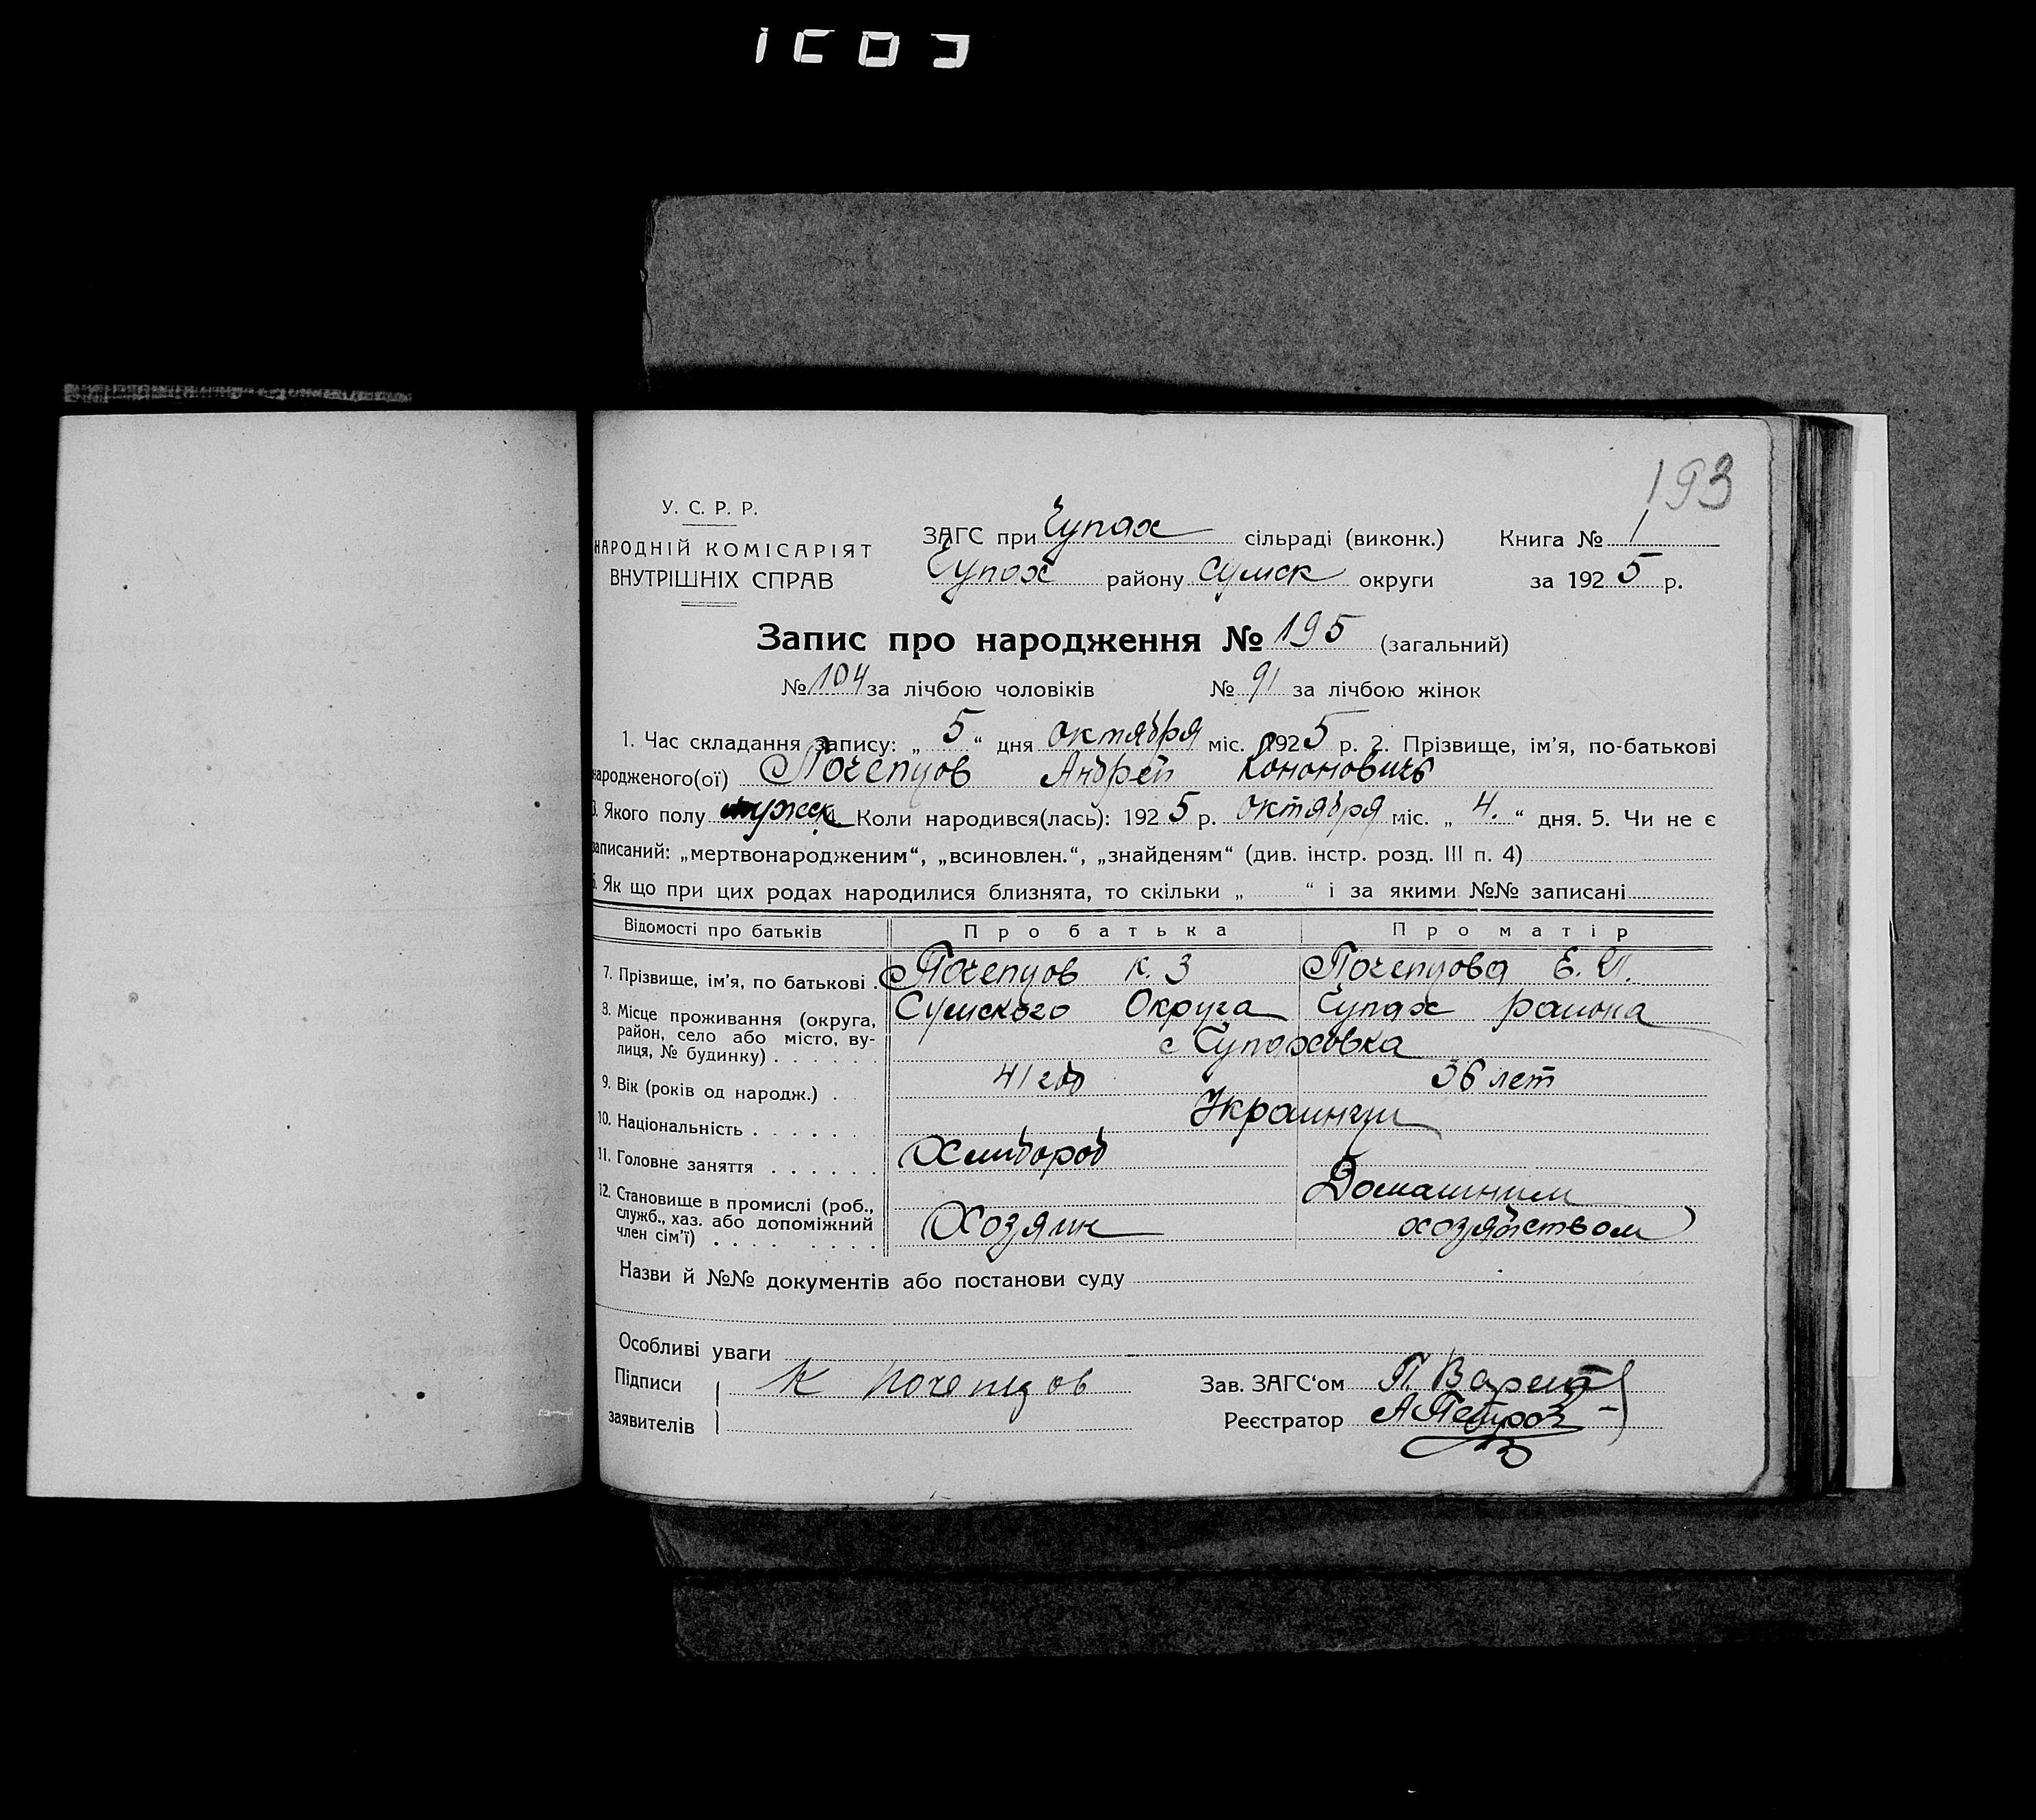 193
У. С. Р. Р.
НАРОДНІЙ КОМІСАРІЯТ
ВНУТРІШНІХ СПРАВ
ЗАГС при Чупах сільраді (виконк.) Книга № 1
Чупах району Сумск округи за 1925 р.
Запис про народження № 195 (загальний)
№ 104 за лічбою чоловіків № 91 за лічбою жінок
1. Час складання запису: „ 5 “ дня октября міс. 1925 р. 2. Прізвище, ім'я, по-батькові
народженого(ої) Почепцов Андрей Кононовичь
3. Якого полу мужск Коли народився(лась): 1925 р. октября міс. „ 4. “ дня. 5. Чи не є
записаний: „мертвонародженим“, „всиновлен.“, „знайденям“ (див. інстр. розд. III п. 4)
6. Як що при цих родах народилися близнята, то скільки „ “ і за якими №№ записані
Відомості про батьків Про батька Про матір
7. Прізвище, ім'я, по батькові . Почепцов К. З Почепцова Е. П.
8. Місце проживання (округа, район, село або місто, вулиця, № будинку) . . . . . Сумского Округа Чупах района
с Чупаховка
9. Вік (років од народж.) . . 41 год 36 лет
10. Національність . . . . . . Украинци
11. Головне заняття . . . . . . Хлибороб
12. Становище в промислі (роб., служб., хаз. або допоміжний член сім'ї) . . . . . . . . Хозяин Домашним
хозяйством
Назви й №№ документів або постанови суду
Особливі уваги
Підписи заявителів К Почепцов
Зав. ЗАГС'ом П.
Реєстратор А Петров